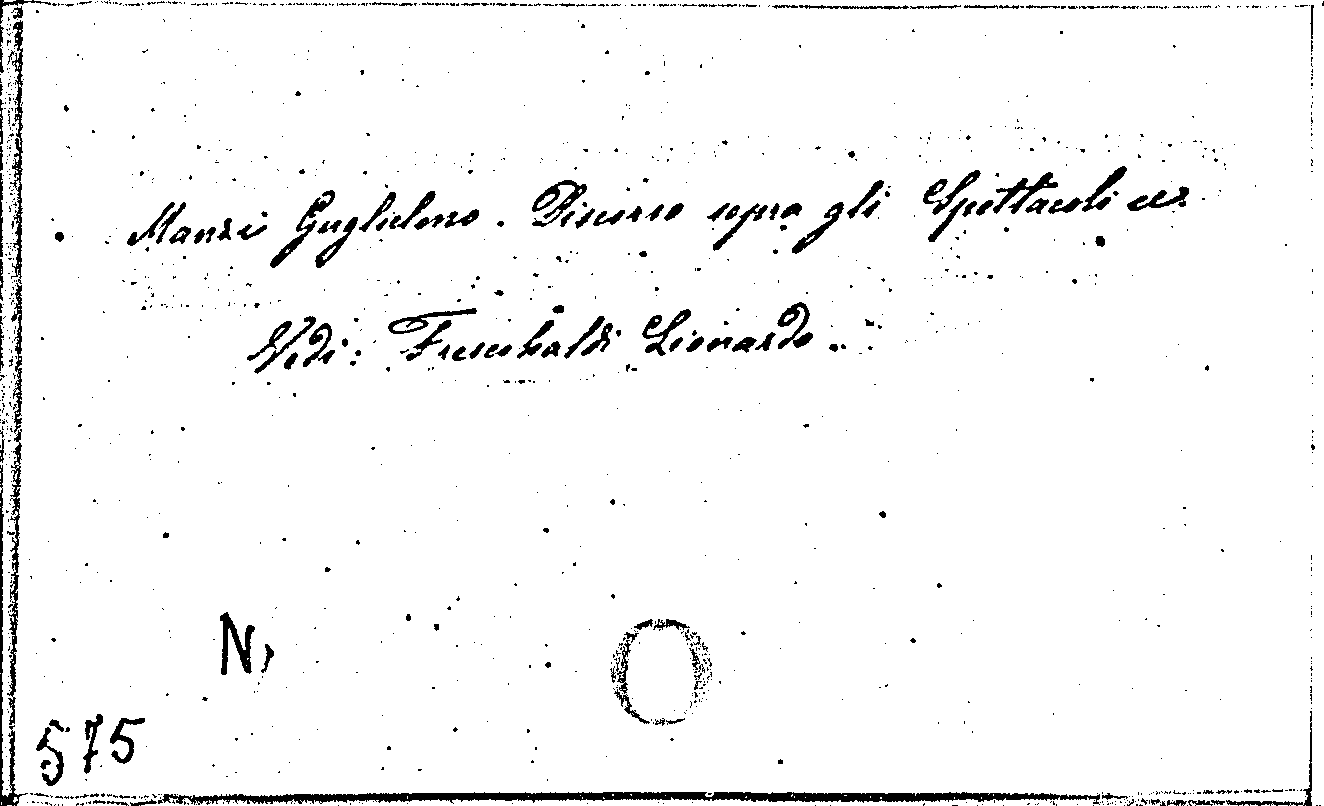 Manzi Guglielmo. Discorso sopra gli Spettacoli ecc.
Vedi: Frescobaldi Lionardo.
N,
575